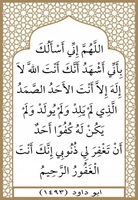 اَللّٰهُمَّ إِنِّي أَسْأَلُكَ
بِأَنِّي أَشْهَدُ أَنَّكَ أَنْتَ اللّٰهُ لَا
إِلٰهَ إِلَّا أَنْتَ الأَحَدُ الصَّمَدُ
الَّذِي لَمْ يَلِدْ وَلَمْ يُولَدْ وَلَمْ
يَكُنْ لَهُ كُفُوًا أَحَدٌ
أَنْ تَغْفِرَ لِي ذُنُوبِي إِنَّكَ أَنْتَ
الْغَفُورُ الرَّحِيمُ
ابو داود (١٤٩٣)